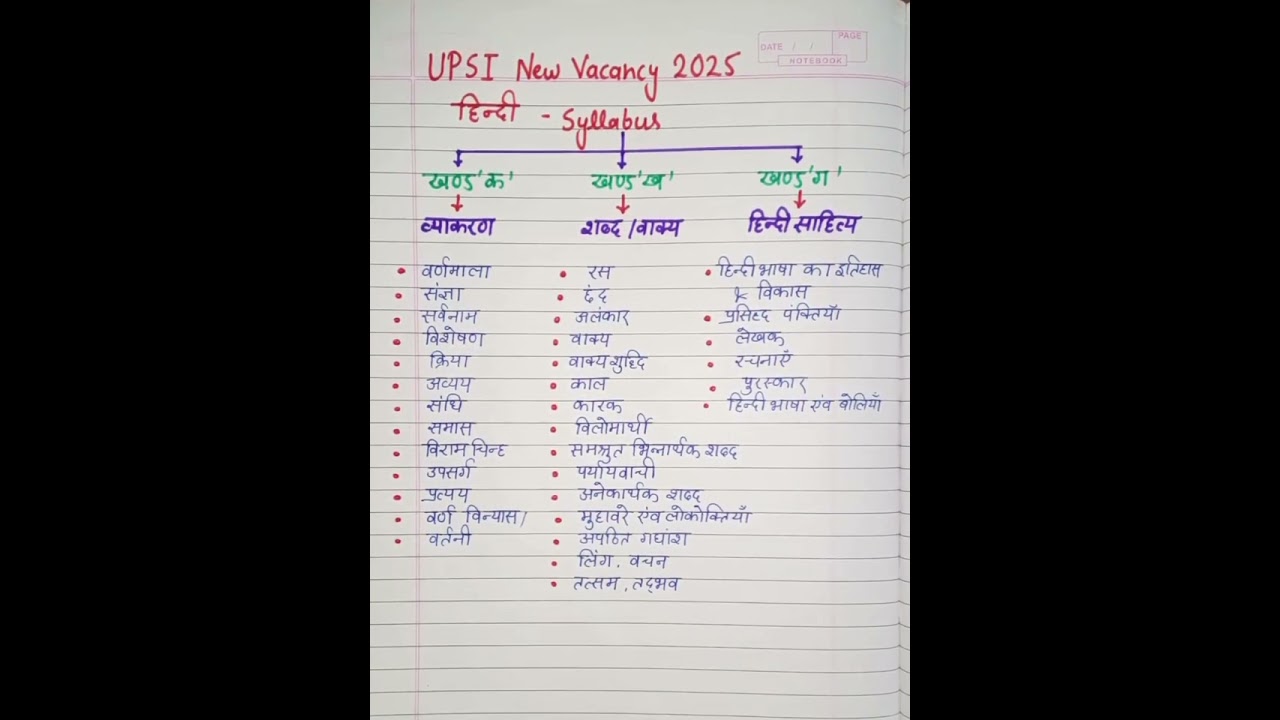 DATE / /
PAGE
NOTEBOOK
UPSI New Vacancy 2025
हिन्दी - Syllabus
खण्ड 'क'
व्याकरण
• वर्णमाला
• संज्ञा
• सर्वनाम
• विशेषण
• क्रिया
• अव्यय
• संधि
• समास
• विराम चिन्ह
• उपसर्ग
• प्रत्यय
• वर्ण विन्यास/
• वर्तनी
खण्ड 'ख'
शब्द/वाक्य
• रस
• छंद
• अलंकार
• वाक्य
• वाक्य शुद्धि
• काल
• कारक
• विलोमार्थी
• समश्रुत भिन्नार्थक शब्द
• पर्यायवाची
• अनेकार्थक शब्द
• मुहावरे एंव लोकोक्तियाँ
• अपठित गद्यांश
• लिंग, वचन
• तत्सम, तद्भव
खण्ड 'ग'
हिन्दी साहित्य
• हिन्दी भाषा का इतिहास
& विकास
• प्रसिद्द पंक्तियाँ
• लेखक
• रचनाएँ
• पुरस्कार
• हिन्दी भाषा एंव बोलियाँ